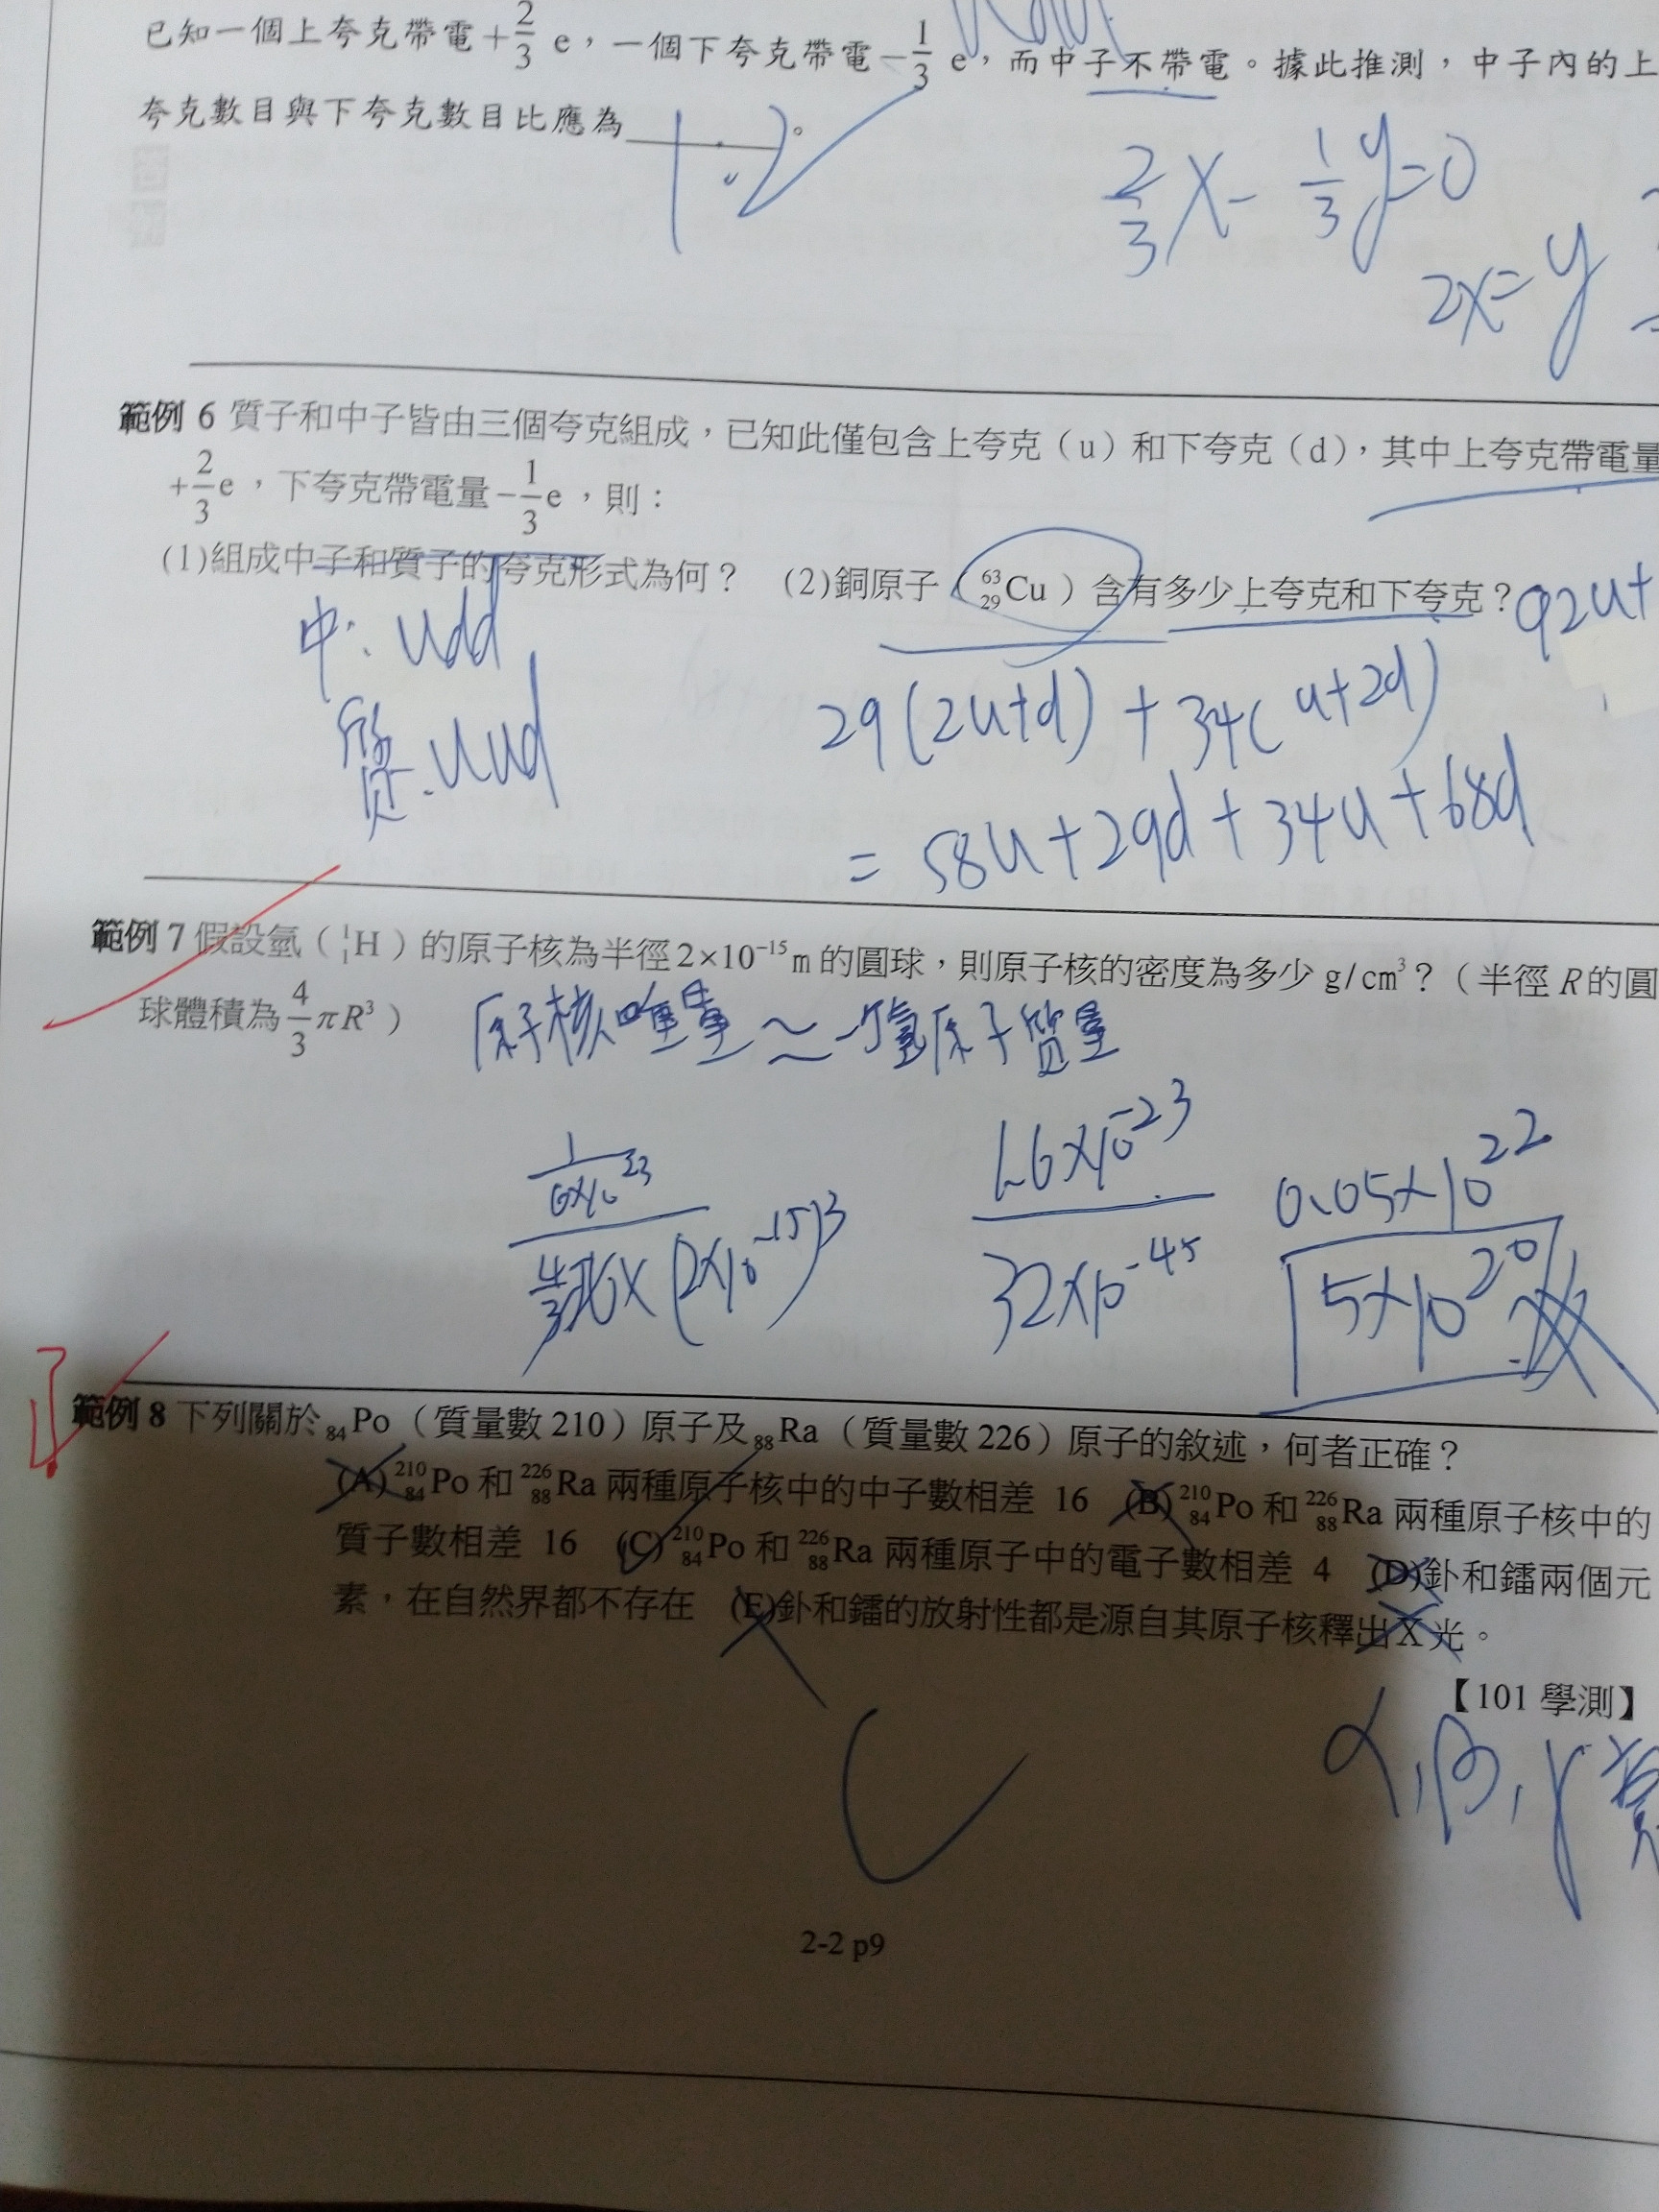 已知一個上夸克帶電+2/3 e，一個下夸克帶電−1/3 e，而中子不帶電。據此推測，中子內的上
夸克數目與下夸克數目比應為 1:2 。
2/3 x − 1/3 y = 0
2x = y
範例 6 質子和中子皆由三個夸克組成，已知此僅包含上夸克（u）和下夸克（d），其中上夸克帶電量
+2/3 e，下夸克帶電量−1/3 e，則：
(1)組成中子和質子的夸克形式為何？ (2)銅原子（⁶³₂₉Cu）含有多少上夸克和下夸克？ 92u+
中: udd
質: uud
29(2u+d) + 34(u+2d)
= 58u+29d+34u+68d
範例 7 假設氫（¹₁H）的原子核為半徑 2×10⁻¹⁵ m 的圓球，則原子核的密度為多少 g/cm³？（半徑 R 的圓
球體積為 4/3 πR³）
原子核質量 ≈ 氫原子質量
1.6×10⁻²³
32×10⁻⁴⁵
0.05×10²²
5×10²⁰
範例 8 下列關於 ₈₄Po（質量數 210）原子及 ₈₈Ra（質量數 226）原子的敘述，何者正確？
(A) ²¹⁰₈₄Po 和 ²²⁶₈₈Ra 兩種原子核中的中子數相差 16 (B) ²¹⁰₈₄Po 和 ²²⁶₈₈Ra 兩種原子核中的
質子數相差 16 (C) ²¹⁰₈₄Po 和 ²²⁶₈₈Ra 兩種原子中的電子數相差 4 (D)釙和鐳兩個元
素，在自然界都不存在 (E)釙和鐳的放射性都是源自其原子核釋出 X 光。
【101 學測】
C
α, β, γ
2-2 p9